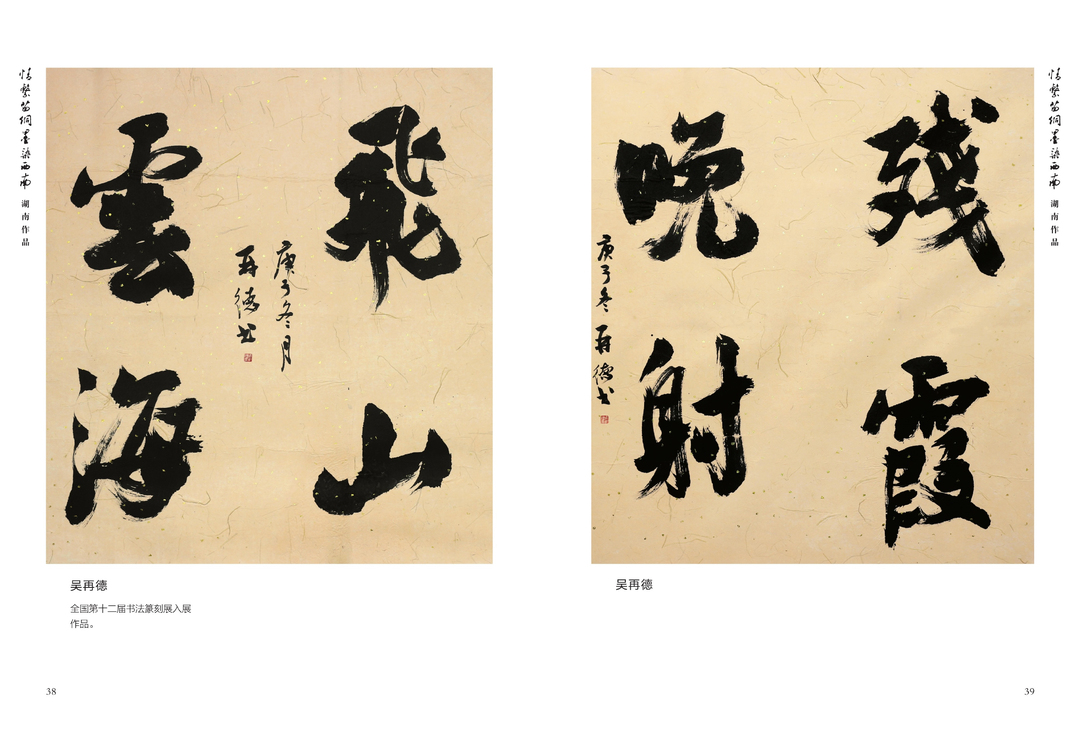 情繫苗侗墨染西南 湖南作品
飛山
雲海
庚子冬月
再德书
吴再德
全国第十二届书法篆刻展入展
作品。
38
情繫苗侗墨染西南 湖南作品
残霞
晚射
庚子冬 再德书
吴再德
39